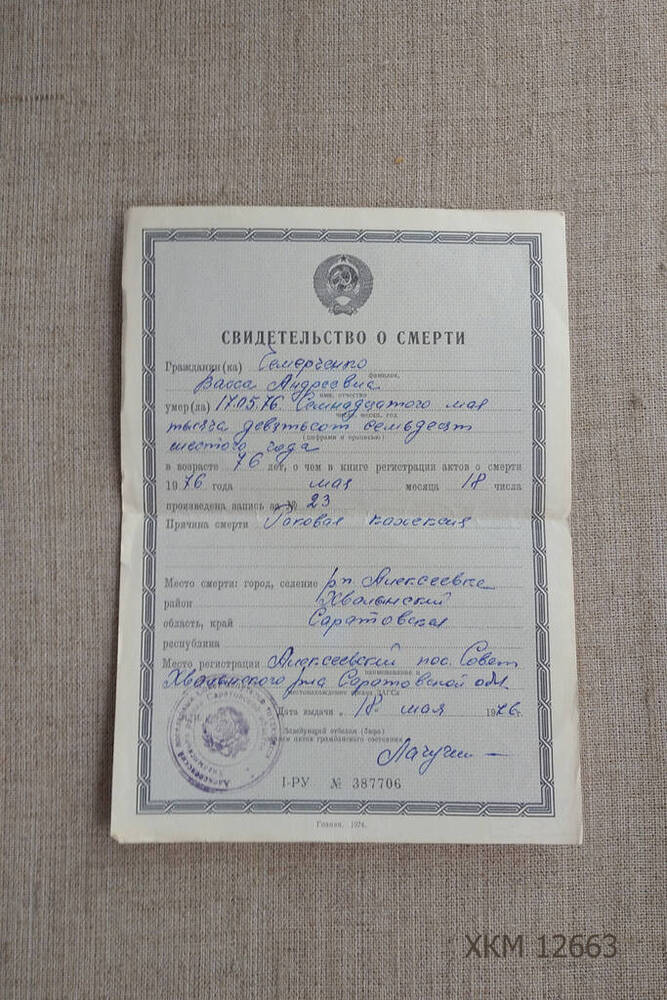 СВИДЕТЕЛЬСТВО О СМЕРТИ
Гражданин(ка) Семерченко
фамилия,
Васса Андреевна
имя, отчество
умер(ла) 17.05.76. Семнадцатого мая
число, месяц, год
тысяча девятьсот семьдесят
(цифрами и прописью)
шестого года
в возрасте 76 лет, о чем в книге регистрации актов о смерти
1976 года мая месяца 18 числа
произведена запись за № 23
Причина смерти Раковая кахексия
Место смерти: город, селение р.п. Алексеевка
район Хвалынский
область, край Саратовская
республика
Место регистрации Алексеевский пос. Совет
наименование и
Хвалынского р-на Саратовской обл.
местонахождение органа ЗАГСа
Дата выдачи „18 мая 1976 г.
М.П.
Заведующий отделом (бюро)
записи актов гражданского состояния
I-РУ № 387706
Гознак. 1974.
ХКМ 12663